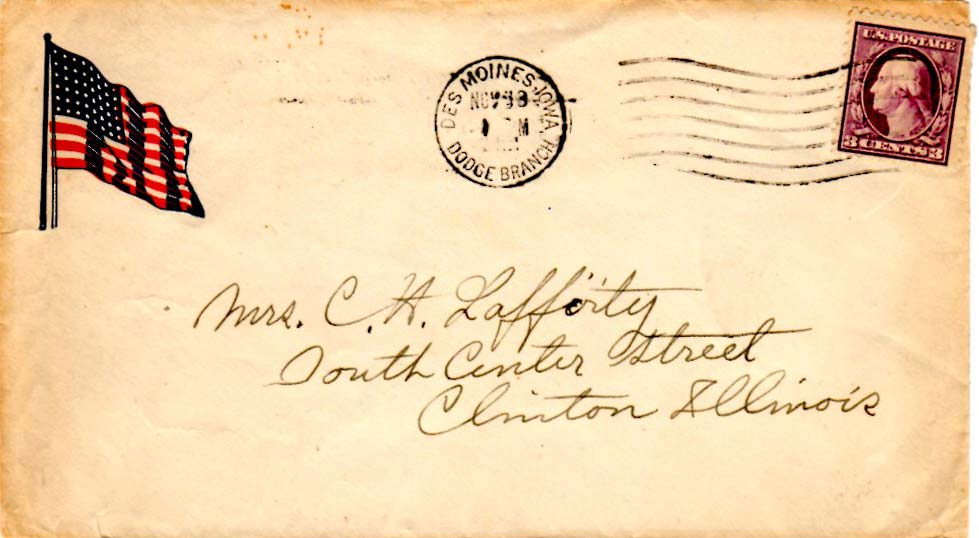 DES MOINES, IOWA.
NOV 13
M
DODGE BRANCH
U.S. POSTAGE
3 CENTS 3
Mrs. C. H. Lafferty
South Center Street
Clinton Illinois